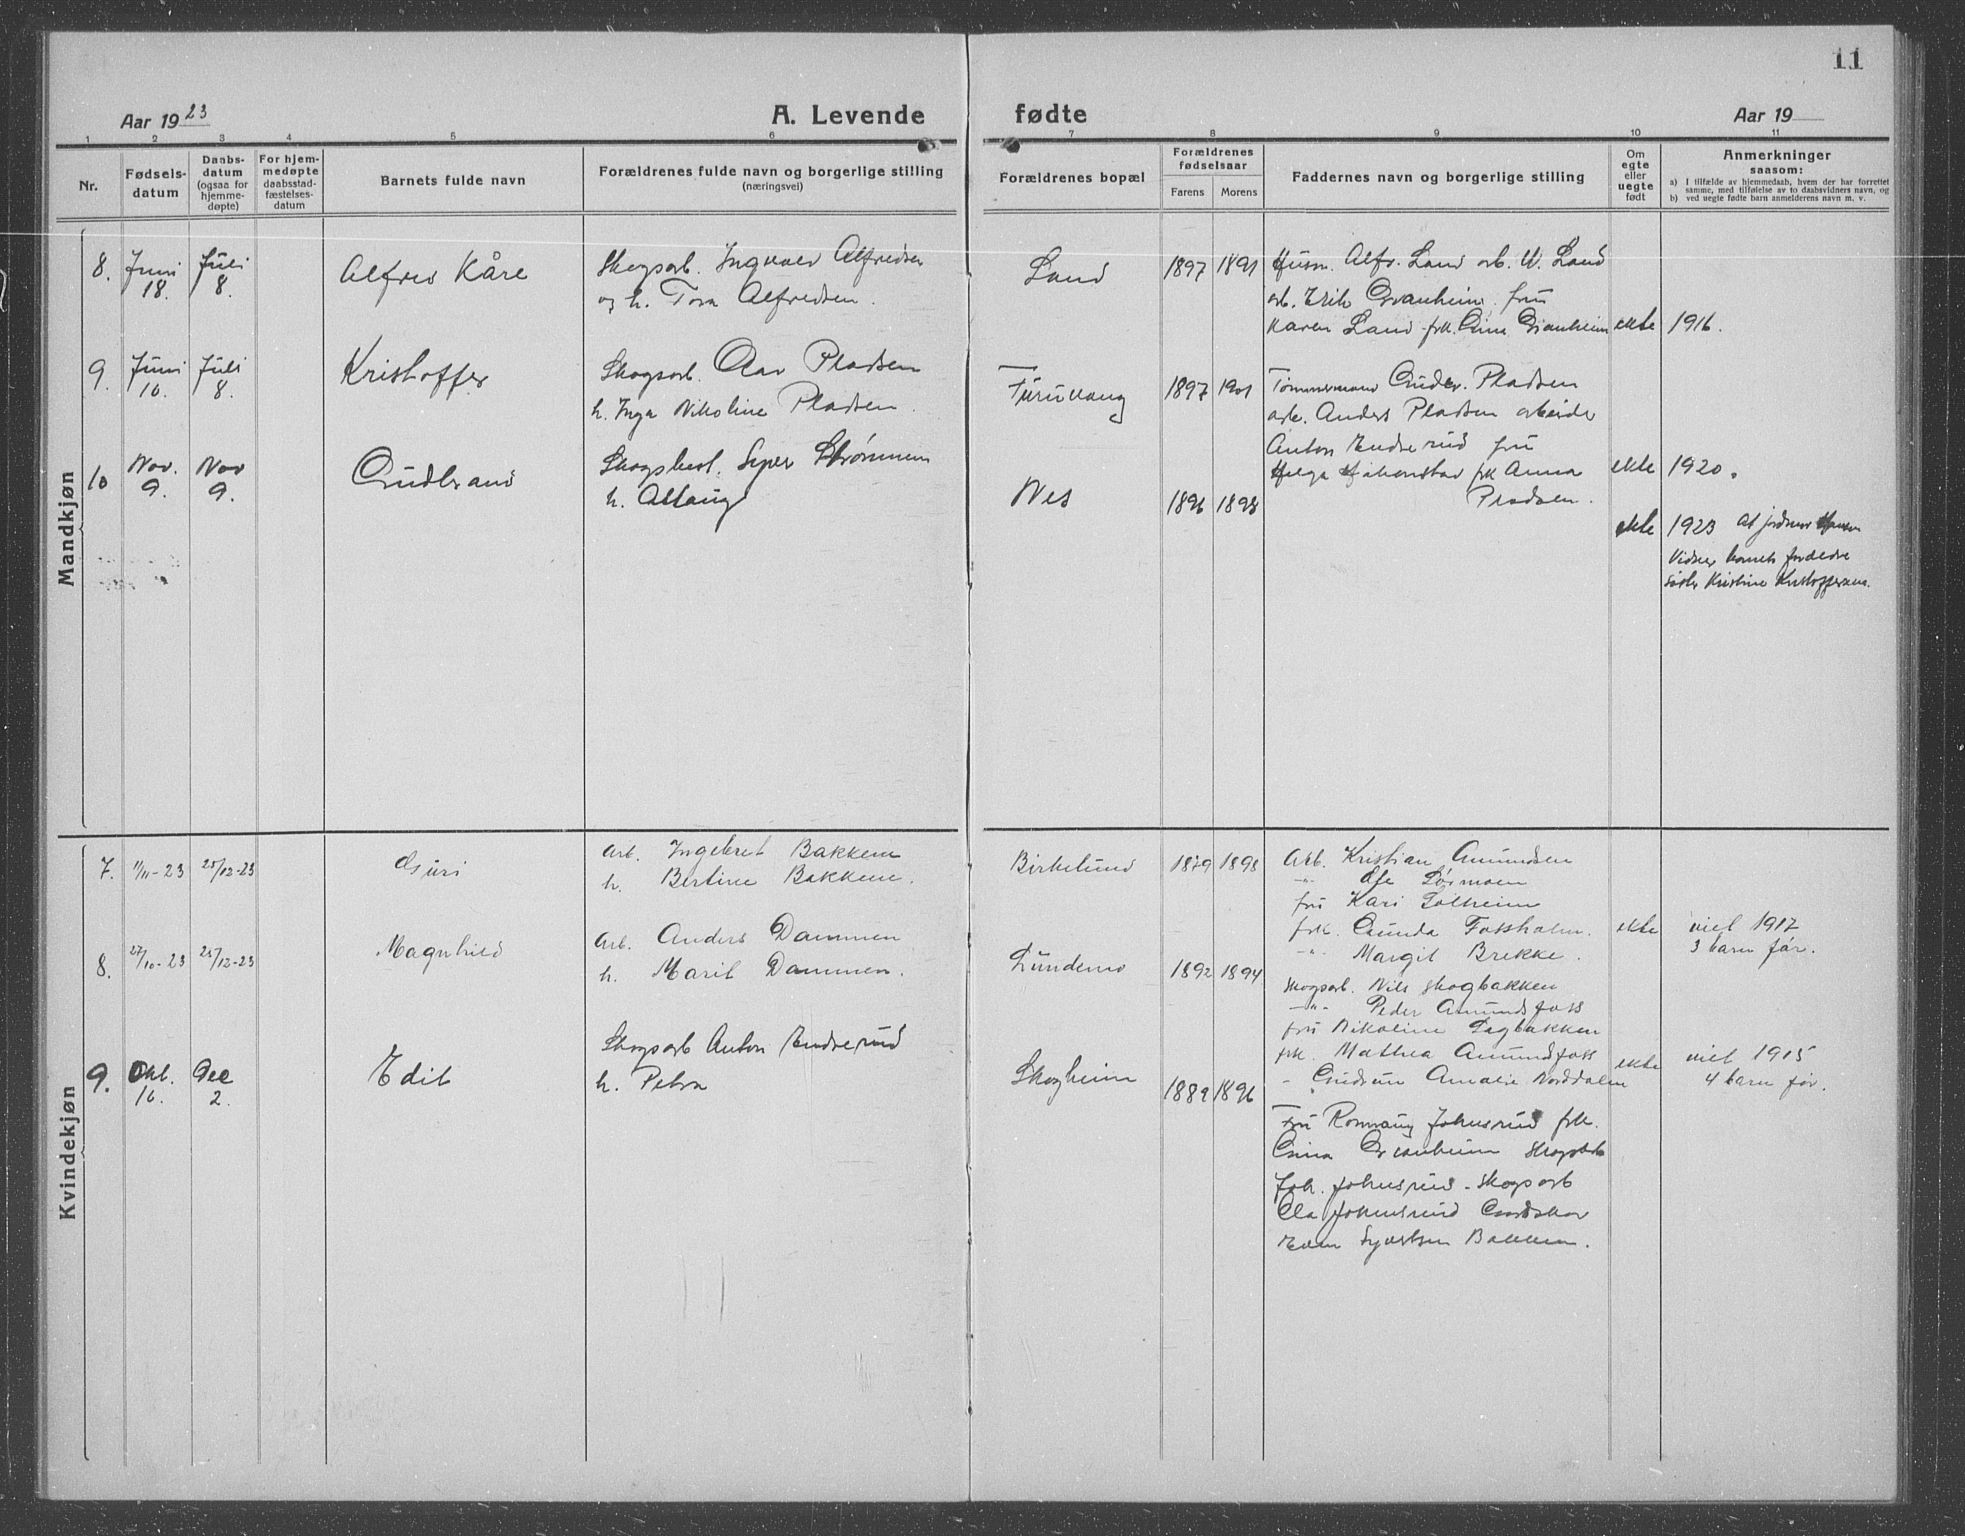 11
Aar 1923 A. Levende fødte Aar 19
1 2 3 4 5 6 7 8 9 10 11
Nr.
Fødsels-
datum
Daabs-
datum
(ogsaa for
hjemme-
døpte)
For hjem-
medøpte
daabsstad-
fæstelses-
datum
Barnets fulde navn
Forældrenes fulde navn og borgerlige stilling
(næringsvei)
Forældrenes bopæl
Forældrenes
fødselsaar
Farens Morens
Faddernes navn og borgerlige stilling
Om
egte
eller
uegte
født
Anmerkninger
saasom:
a) I tilfælde av hjemmedaab, hvem der har forrettet
samme, med tilføielse av to daabsvidners navn, og
b) ved uegte fødte barn anmelderens navn m. v.
Mandkjøn
8. Juni Juli
18. 8.
Alfred Kåre
Skogsarb. Ingvald Alfredsen
og h. Tora Alfredsen.
Land
1897 1891
Husm. Alfr. Land arb. W. Land
arb. Erik Granheim. fru
Karen Land frk. Gina Granheim ekte 1916.
9. Juni Juli
10. 8.
Kristoffer
Skogsarb. Olav Pladsen
h. Inga Nikoline Pladsen.
Furuvang
1897 1901
Tømmermand Gudbr. Pladsen
arb. Anders Pladsen arbeider
Anton Endrerud fru
Helga Håkenstad frk Anna ekte 1920.
Pladsen.
10 Nov. Nov
9. 9.
Gudbrand
Skogsbest. Syver Strømmen
h. Aslaug
Nes
1896 1898
ekte 1923 Af jordmor Hansen
Vidner barnets forældre
Søster Kristine Kristoffersen.
Kvindekjøn
7. 11/11-23 25/12-23
Guri
Arb. Ingebret Bakken
h. Bertine Bakken.
Birkelund
1879 1898
Arb. Kristian Amundsen
-"- Ole Sørmoen
fru Kari Solheim
frk. Gunda Fossholm. ekte viet 1917
-"- Margit Brekke. 3 barn før.
8. 27/10-23 25/12-23
Magnhild
Arb. Anders Dammen
h. Marit Dammen.
Lundemo
1892 1894
Skogsarb. Nils Skogbakken
-"- Peder Amundsfoss
fru Nikoline Dagbakken
frk. Mathea Amundsfoss ekte viet 1915
- Gudrun Amalie Norddalen 4 barn før.
9. Okt. Dec
16. 2.
Edit
Skogsarb Anton Endrerud
h. Petra
Skogheim
1889 1896
Fru Rønnaug Johnsrud frk.
Gina Granheim skogsarb
Joh. Johnsrud - skogsarb
Ola Johnsrud Gardskar
Edin Syvertsen Bakken.